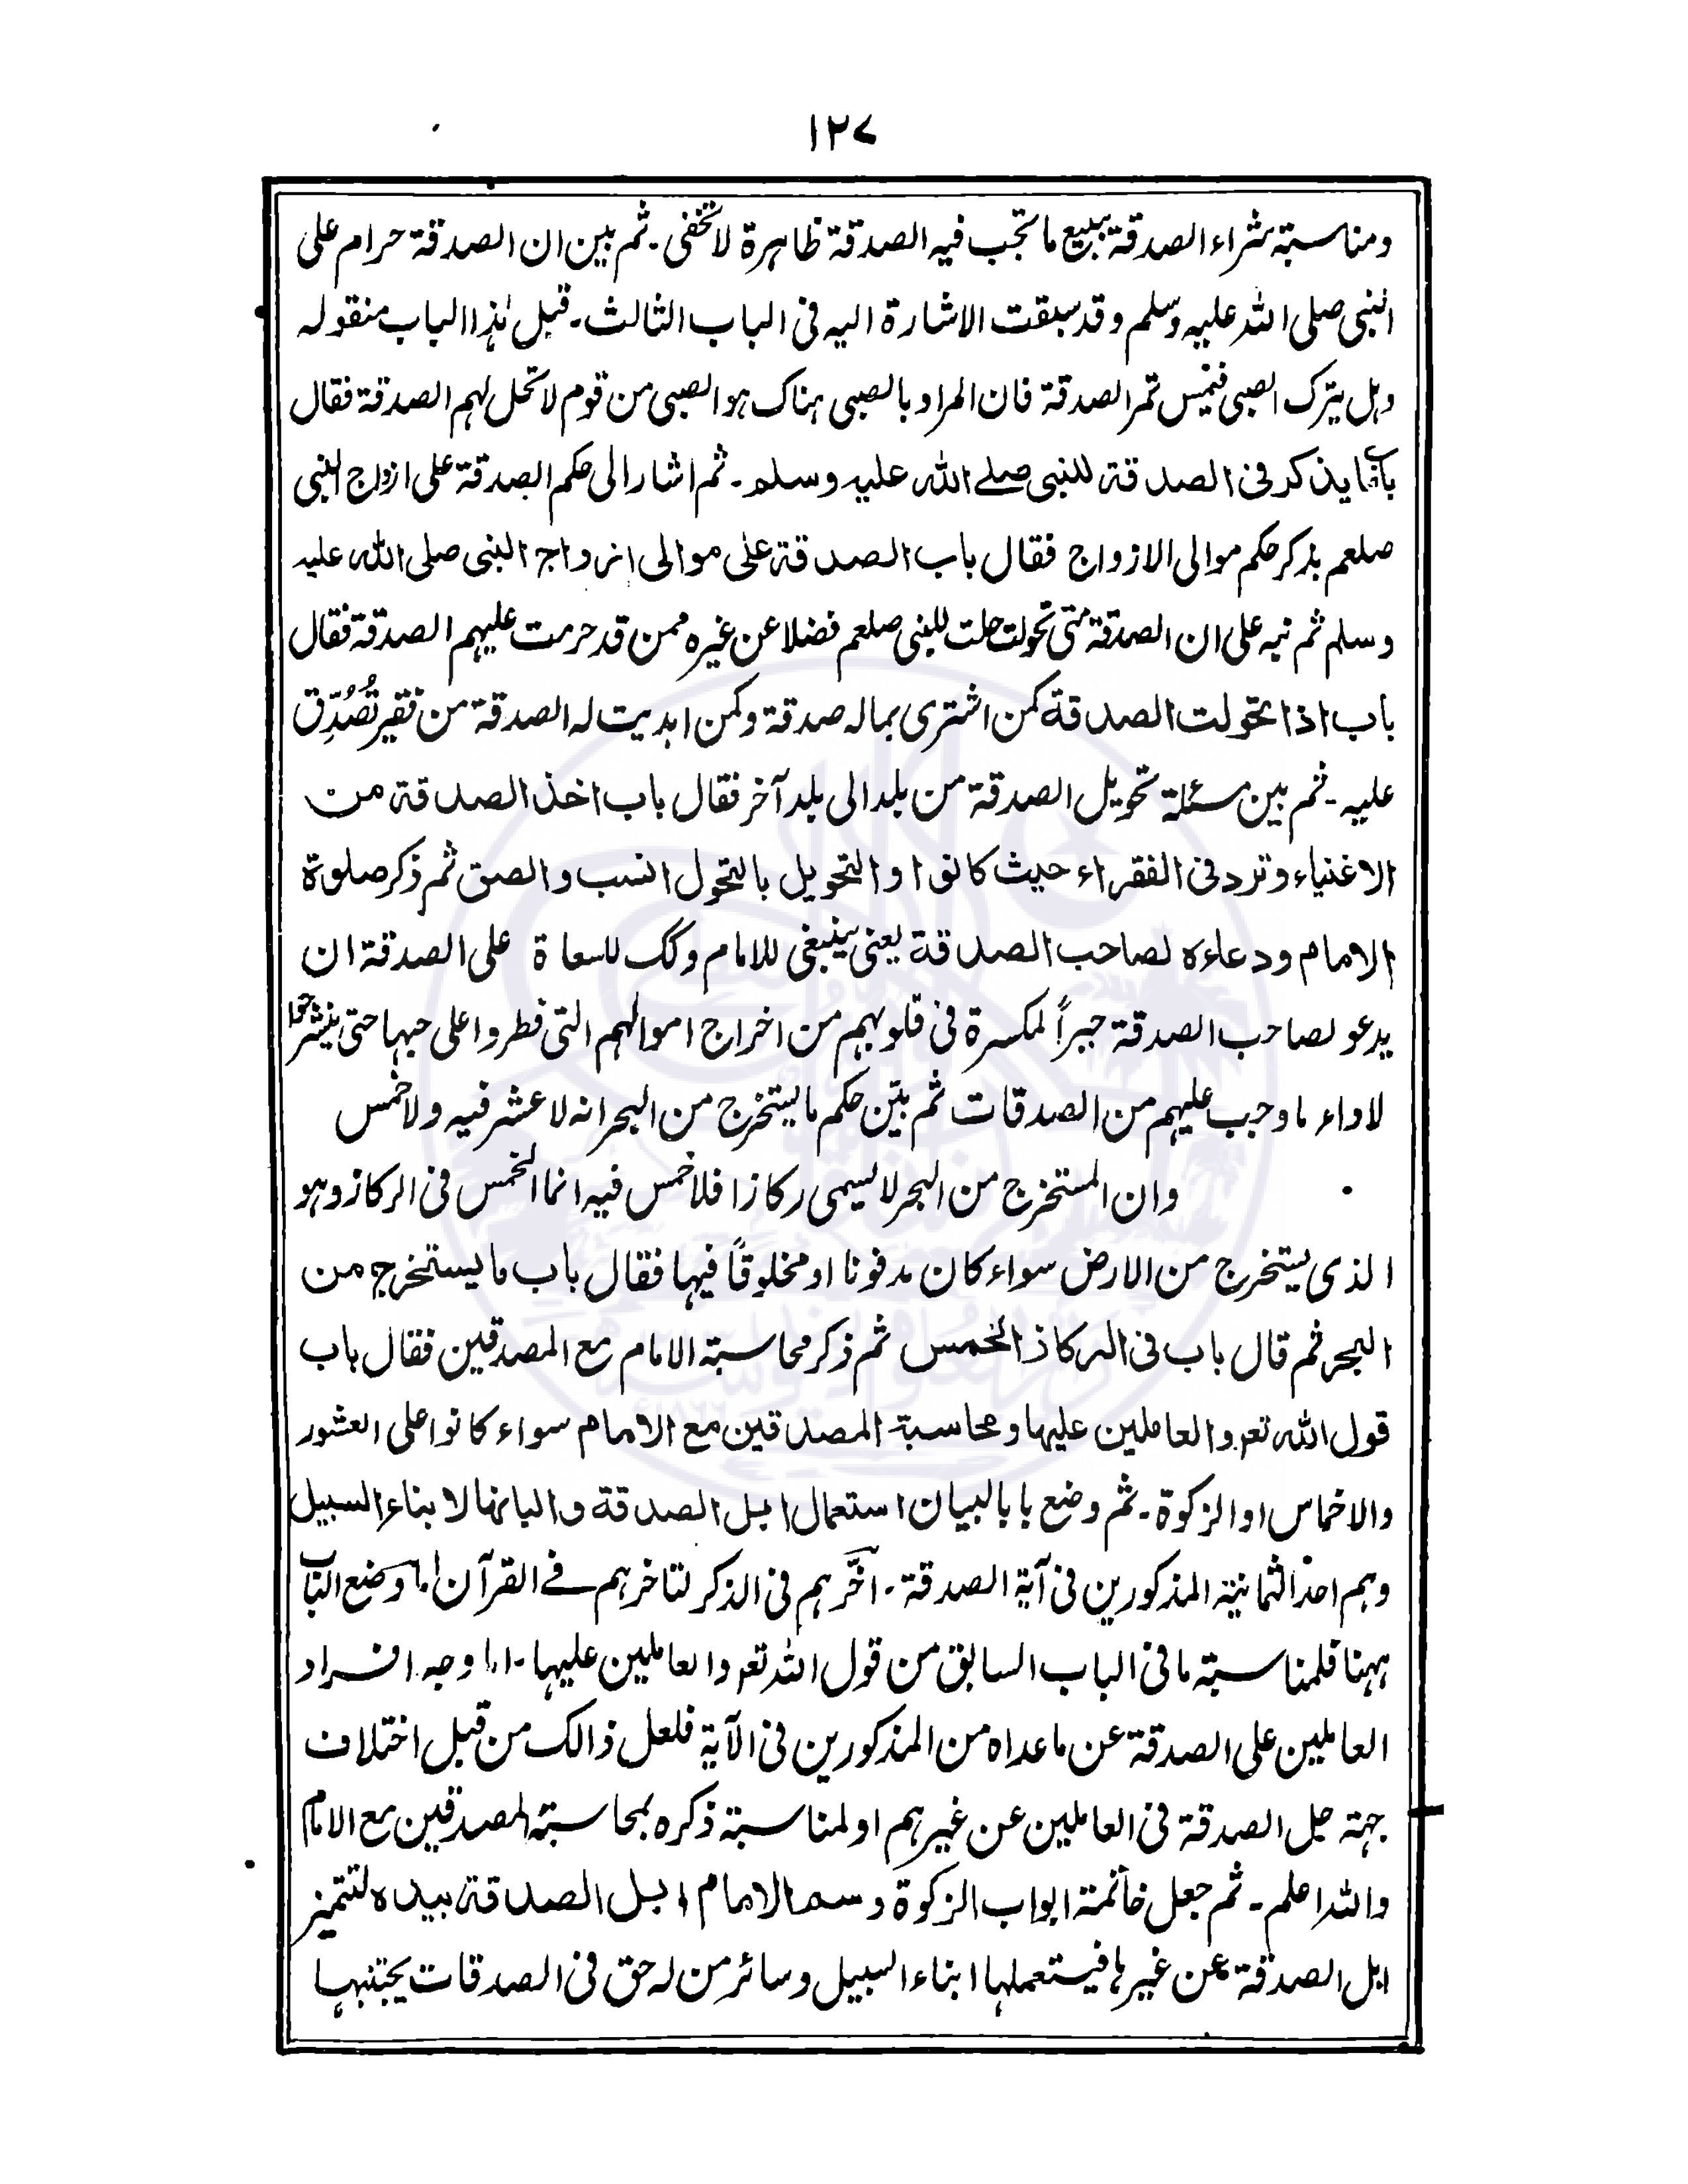 ١٢٧
ومناسبته شراء الصدقة ببيع ما تجب فيه الصدقة ظاهرة لا تخفى ـ ثم بين ان الصدقة حرام على
النبي صلى الله عليه وسلم وقد سبقت الاشارة اليه فى الباب الثالث ـ قبل هذا الباب منقوله
وهل يترك الصبى فيمس تمر الصدقة فان المراد بالصبى هناك هو الصبى من قوم لا تحل لهم الصدقة فقال
باب ما يذكر فى الصدقة للنبى صلے الله عليه وسلم ـ ثم اشار الى حكم الصدقة على ازواج النبى
صلعم بذكر حكم موالى الازواج فقال باب الصدقة على موالى ازواج النبى صلى الله عليه
وسلم ثم نبه على ان الصدقة متى تحولت حلت للنبى صلعم فضلا عن غيره ممن قد حرمت عليهم الصدقة فقال
باب اذا تحولت الصدقة كمن اشترى بماله صدقة وكمن اهديت له الصدقة من فقير تُصُدِّق
عليه ـ ثم بين مسئلة تحويل الصدقة من بلد الى بلد آخر فقال باب اخذ الصدقة من
الاغنياء وترد فى الفقراء حيث كانوا والتحويل بالتحول انسب والصق ثم ذكر صلوة
الامام ودعاءه لصاحب الصدقة يعنى ينبغى للامام وكك للسعاة على الصدقة ان
يدعو لصاحب الصدقة جبراً لمكسرة فى قلوبهم من اخراج اموالهم التى فطروا على حبها حتى ينشرحوا
لاداء ما وجب عليهم من الصدقات ثم بيّن حكم ما يستخرج من البحر انه لا عشر فيه ولا خمس
وان المستخرج من البحر لا يسمى ركازا فلا خمس فيه انما الخمس فى الركاز وهو
الذى يستخرج من الارض سواء كان مدفونا او مخلوقاً فيها فقال باب ما يستخرج من
البحر ثم قال باب فى الركاز الخمس ثم ذكر محاسبة الامام مع المصدقين فقال باب
قول الله تعہ والعاملين عليها ومحاسبة المصدقين مع الامام سواء كانوا على العشور
والاخماس او الزكوة ـ ثم وضع بابا لبيان استعمال ابل الصدقة والبانها لابناء السبيل
وهم احد الثمانية المذكورين فى آية الصدقة ـ اخَّرهم فى الذكر لتاخرهم فے القرآن اما وضع الباب
ههنا فلمناسبته ما فى الباب السابق من قول الله تعہ والعاملين عليها ـ اما وجه افراد
العاملين على الصدقة عن ما عداه من المذكورين فى الآية فلعل ذالك من قبل اختلاف
جهته حل الصدقة فى العاملين عن غيرهم او لمناسبة ذكره بمحاسبته المصدقين مع الامام
والله اعلم ـ ثم جعل خاتمة ابواب الزكوة وسم الامام ابل الصدقة بيده لتتميز
ابل الصدقة عن غيرها فيستعملها ابناء السبيل وسائر من له حق فى الصدقات يجتنبها